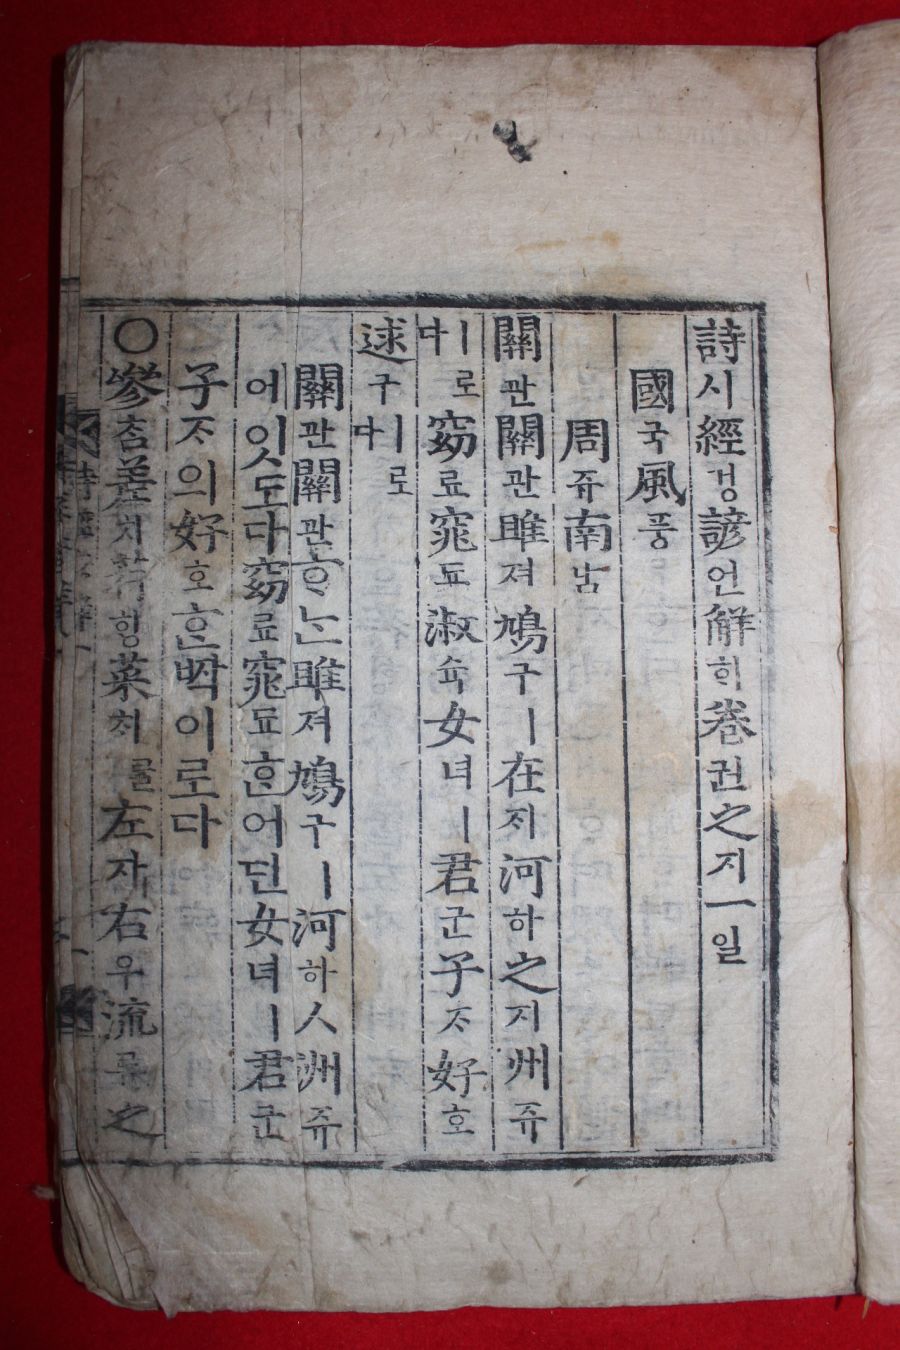 詩시經경諺언解ᄒᆡ卷권之지一일
國국風풍
周쥬南남
關관關관雎져鳩구ㅣ在ᄌᆡ河하之지洲쥬
ㅣ로다窈료窕됴淑슉女녀ㅣ君군子ᄌᆞ好호
逑구ㅣ로다
關관關관ᄒᆞᄂᆞᆫ雎져鳩구ㅣ河하ㅅ洲쥬
에잇도다窈료窕됴ᄒᆞᆫ어딘女녀ㅣ君군
子ᄌᆞ의好호ᄒᆞᆫᄧᅡᆨ이로다
○參ᄎᆞᆷ差치荇ᄒᆡᆼ菜ᄎᆡ를左자右우流류之